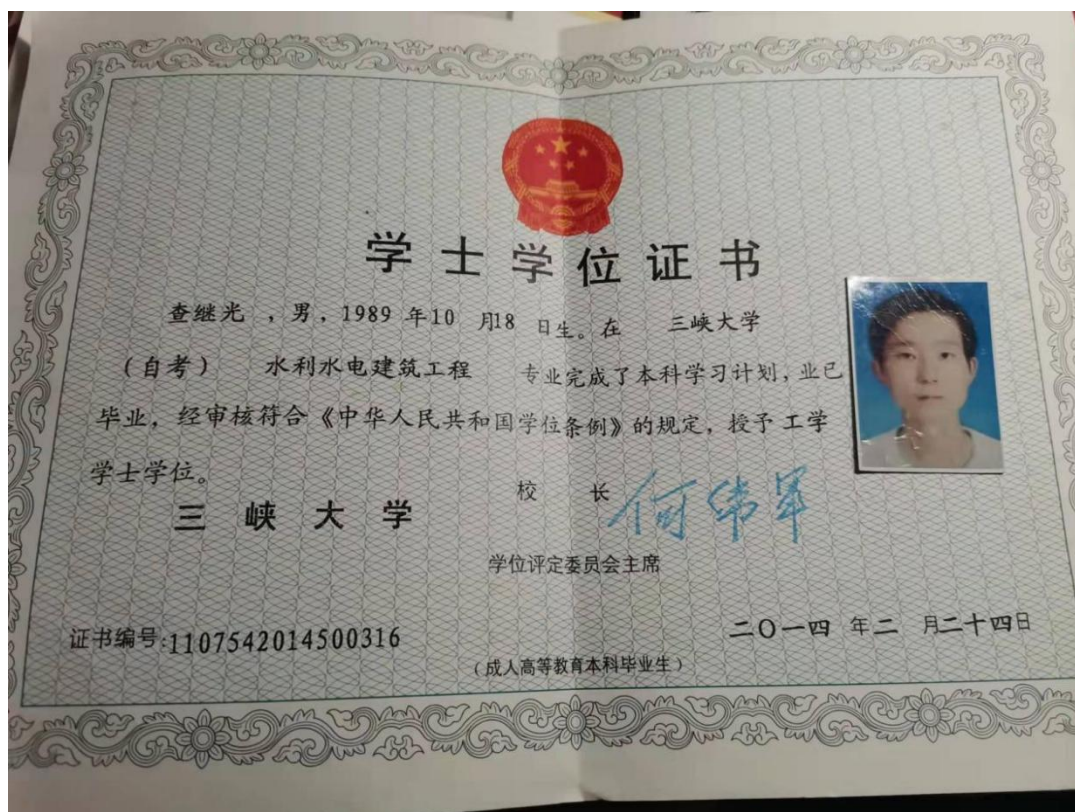 学士学位证书
查继光 ,男, 1989 年10 月18 日生。在 三峡大学
(自考) 水利水电建筑工程 专业完成了本科学习计划,业已
毕业,经审核符合《中华人民共和国学位条例》的规定,授予 工学
学士学位。
校 长 何伟军
三峡大学
学位评定委员会主席
证书编号:1107542014500316
二〇一四 年二 月二十四日
(成人高等教育本科毕业生)